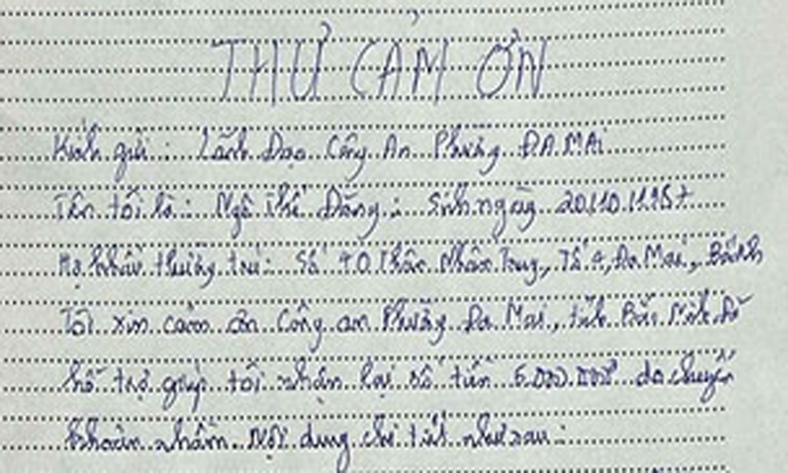 THƯ CẢM ƠN
Kính gửi: Lãnh Đạo Công An Phường ĐA MAI
Tên tôi là: Ngô Thế Đăng: Sinh ngày 20.10.1957
Hộ khẩu thường trú: Số 40 Thân Nhân Trung, Tổ 4, Đa Mai,
Tôi xin cảm ơn Công an Phường Đa Mai, tỉnh Bắc Ninh đã
hỗ trợ giúp tôi nhận lại số tiền 5.000.000đ do chuyển
khoản nhầm Nội dung chi tiết như sau: